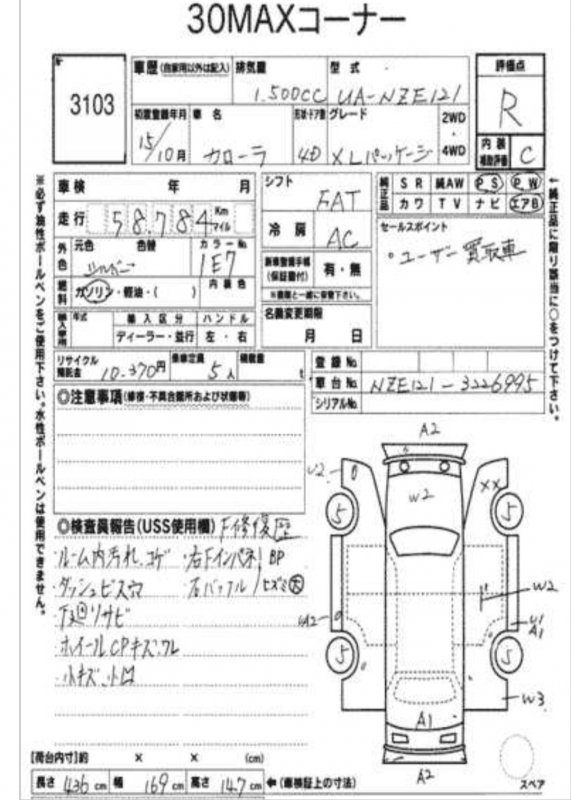 30MAXコーナー
3103
車歴(自家用以外は記入) 排気量 型式
1.500CC UA-NZE121
評価点
R
初度登録年月 車名 形状・ドア数 グレード 2WD・4WD
15/10月 カローラ 4D XLパッケージ
内装補助評価 C
車検 年 月
走行 58,784 Km マイル
外色 元色 色替 カラーNo.
シルバー 1E7
燃料 ガソリン・軽油・( ) 内装色
輸入車用 年式 輸入区分 ハンドル
ディーラー・並行 左・右
シフト FAT
冷房 AC
新車整備手帳(保証書付) 有・無
※書類と一緒に保管下さい。
名義変更期限
月 日
純正品 SR 純AW PS PW
カワ TV ナビ エアB
セールスポイント
ユーザー買取車
リサイクル預託金 10.370円 乗車定員 5人 積載量 t
登録No.
車台No. NZE121-3226995
シリアルNo.
◎注意事項(修復・不具合箇所および状態等)
◎検査員報告(USS使用欄) F修復歴
・ルーム内汚れ、コゲ ・右Fインパネ BP
・ダッシュビス穴 ・右バッフル ヒズミ大
・下廻りサビ
・ホイールCPキズ、ワレ
・小キズ、小凹
A2
U2
W2
XX
5
5
W2
U1
A1
5
5
W3
A1
A2
スペア
【荷台内寸】約 × × (cm)
長さ 436 cm 幅 169 cm 高さ 147 cm ←(車検証上の寸法)
※必ず油性ボールペンをご使用下さい。水性ボールペンは使用できません。
←純正品に限り該当に○をつけて下さい。